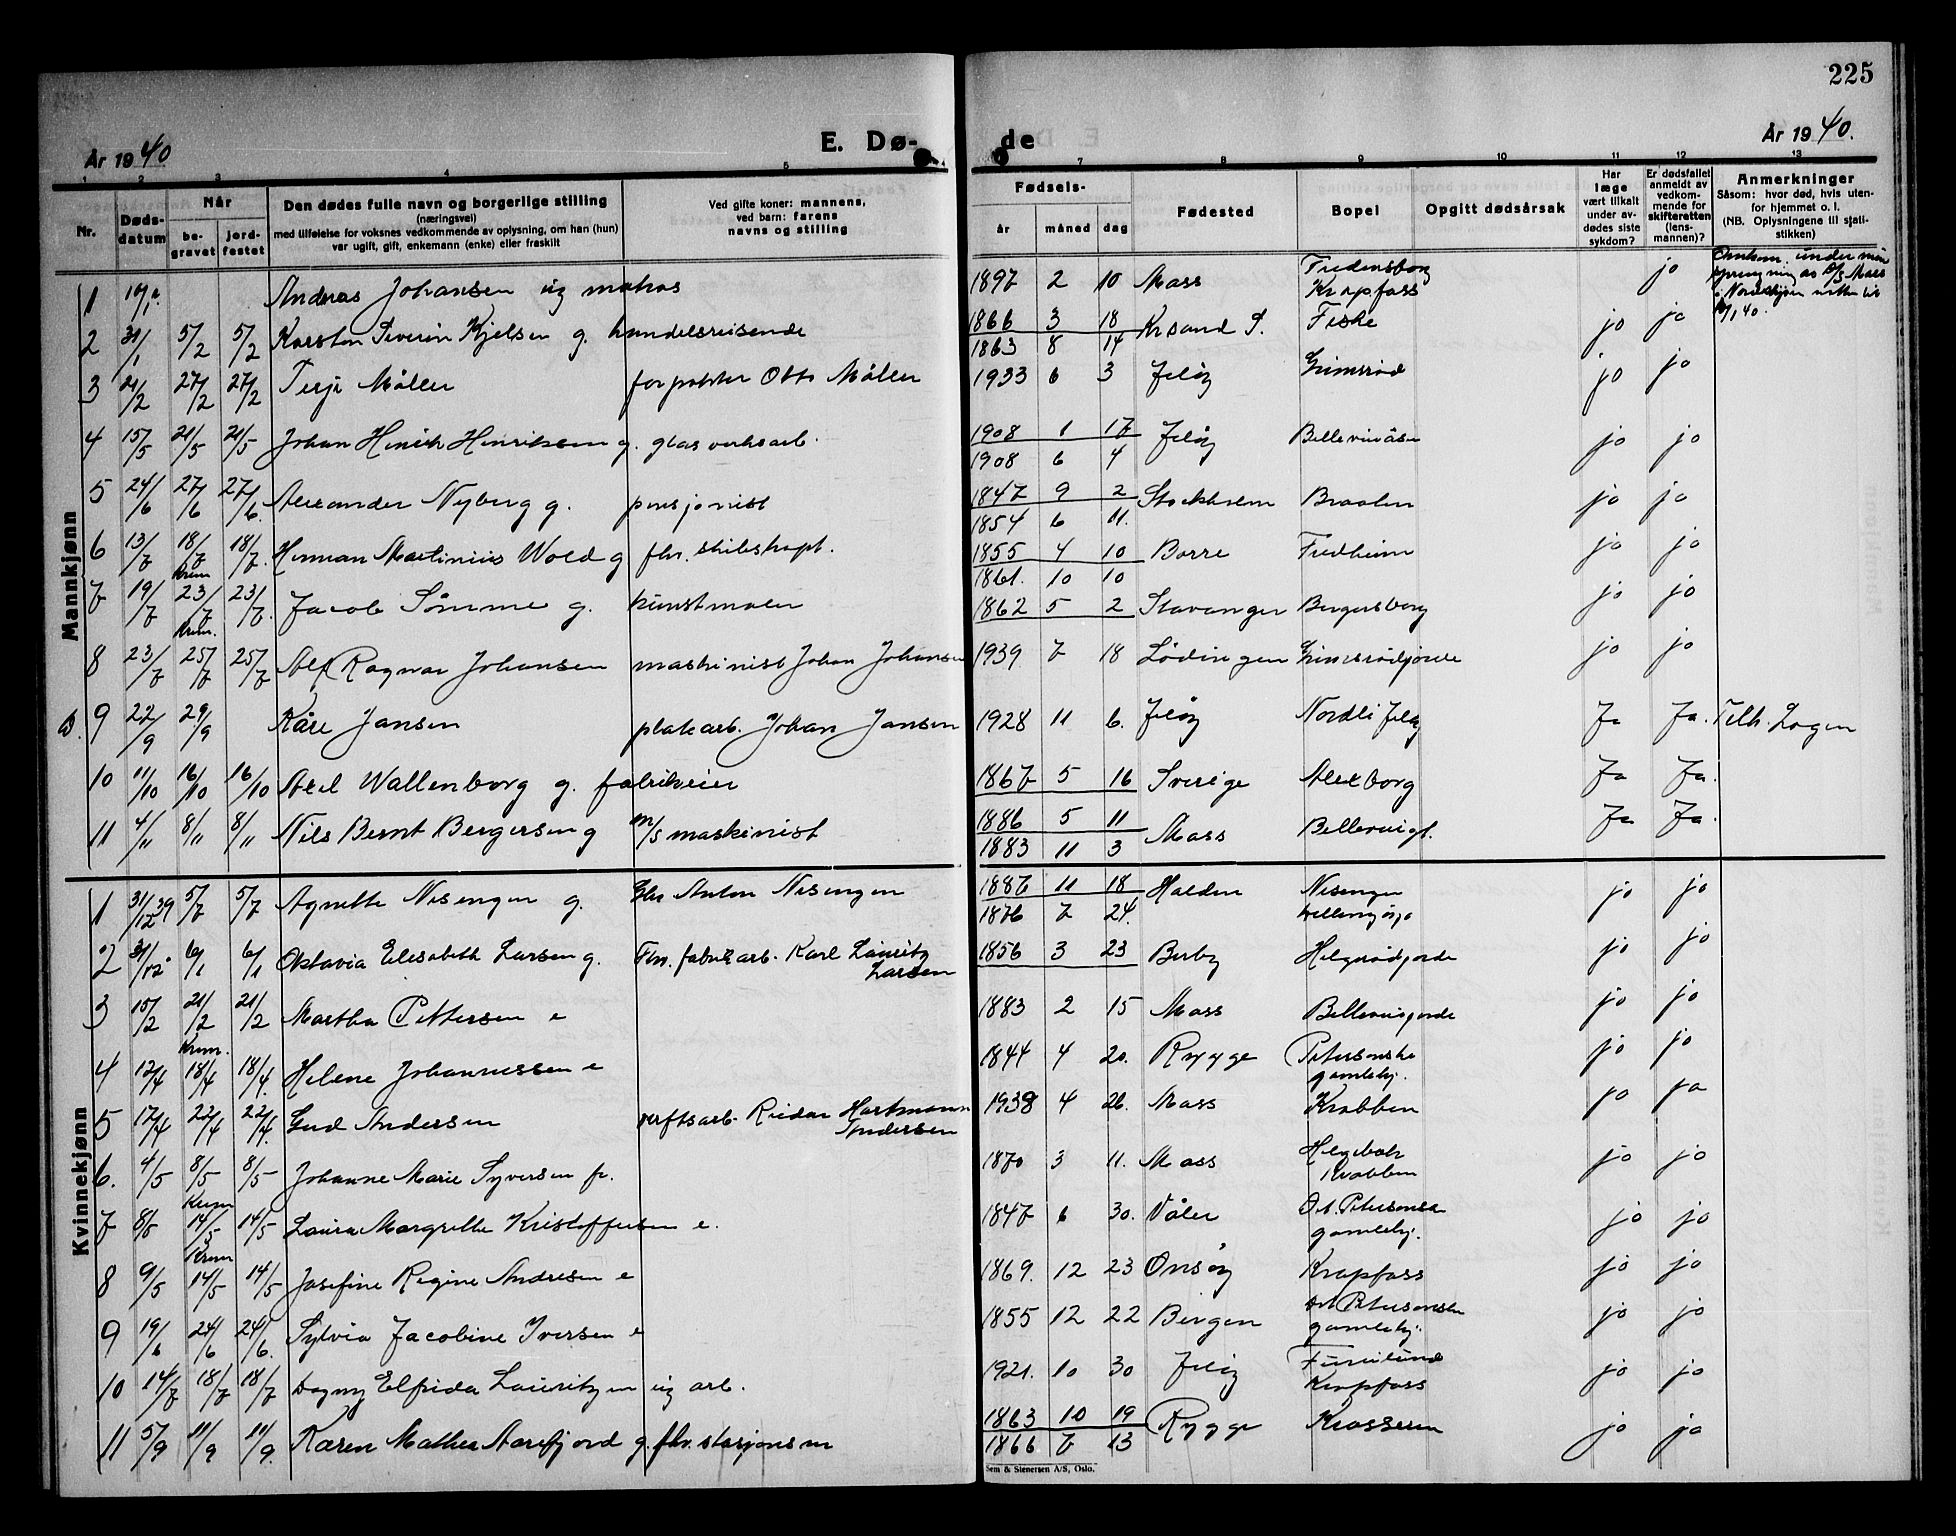 225
År 1940
E. Dø-
de
År 1940.
1 2 3 4 5 7 8 9 10 11 12 13
Nr.
Døds-
datum
Når
be-
gravet
jord-
festet
Den dødes fulle navn og borgerlige stilling
(næringsvei)
med tilføielse for voksnes vedkommende av oplysning, om han (hun)
var ugift, gift, enkemann (enke) eller fraskilt
Ved gifte koner: mannens,
ved barn: farens
navns og stilling
Fødsels-
år måned dag
Fødested
Bopel
Opgitt dødsårsak
Har
læge
vært tilkalt
under av-
dødes siste
sykdom?
Er dødsfallet
anmeldt av
vedkom-
mende for
skifteretten
(lens-
mannen)?
Anmerkninger
Såsom: hvor død, hvis uten-
for hjemmet o. l.
(NB. Oplysningene til stati-
stikken)
Mannkjønn
1 Andreas Johansen ug matros 1897 2 10 Moss Fredensborg Krapfoss jo Omkom. under
2 31/1 5/2 5/2 Karsten Severin Kjelsen g. handelsreisende 1866 3 18 Krsand S. Feste jo jo
1863 8 14
3 21/2 27/2 27/2 Terje Møller forpakter Otto Møller 1933 6 3 Jeløy Grimsrød jo jo
4 15/5 21/5 21/5 Johan Henrik Henriksen g. glasverksarb. 1908 1 17 Jeløy Bellevueåsen jo jo
1908 6 4
5 24/6 27/6 27/6. Alexander Nyberg g. pensjonist 1847 9 2 Stockholm Braaten jo jo
1854 6 11.
6 13/7 18/7 18/7. Herman Martinius Wold g fhv. skibskapt. 1855 4 10 Borre Fredheim jo jo
Krem 1861. 10 10
7 19/7 23/7 23/7. Jacob Sømme g. kunstmaler 1862 5 2 Stavanger Bergersborg jo jo
Krem.
8 23/7 25/7 25/7 Alf Ragnar Johansen maskinist Johan Johansen 1939 7 18 Lødingen Grimsrødjorde jo jo
D. 9 22/9 29/9 Kåre Jansen platearb. Johan Jansen 1928 11 6. Jeløy Nordli Jeløy Ja Ja. Tilh. Logen
10 11/10 16/10 16/10 Axel Wallenborg g. fabrikeier 1867 5 16 Sverige Alexborg Ja Ja.
11 4/11 8/11 8/11 Nils Bernt Bergersen g m/s maskinist 1886 5 11 Moss Ja Ja.
1883 11 3
Kvinnekjønn
1 31/12 39 5/7 5/7 Agnette Nesengen g. Anton Nesengen 1887 11 18 Halden Nesengen jo jo
1876 7 24.
2 31/12 6/1 6/1 Oktavia Elisabeth Larsen g. Fhv. fabrikarb. Karl Lauritz 1856 3 23 Berby Helgerødjorde jo jo
Larsen
3 15/2 21/2 21/2 Martha Pettersen e 1883 2 15 Moss Bellevuejorde jo jo
Krem.
4 12/4 18/4 18/4. Helene Johannessen e 1844 4 20. Rygge Petersonske jo jo
gamlehj.
5 17/4 22/4 22/4. Gud Andersen verftsarb. Reidar Hartmann 1938 4 26. Moss Krabben jo ja
Andersen
6. 4/5 8/5 8/5 Johanne Marie Syversen fr. 1870 3 11. Moss Helgebok jo jo
Krabben
Krem
7 8/5 14/5 14/5 Laura Margrethe Kristoffersen e. 1847 6 30. Våler Det Petersonske jo jo
gamlehj.
Krem
8 9/5 14/5 14/5 Josefine Regine Andresen e 1869. 12 23 Onsøy Krapfoss jo jo
9 19/6 24/6 24/6. Sylvia Jacobine Iversen e 1855 12 22 Bergen Det Petersonske jo jo
gamlehj.
10 14/7 18/7 18/7 Dagny Elfrida Lauritzen ug arb. 1921. 10 30 Jeløy Furulund jo jo
Krapfoss
11 5/9 11/9 11/9. Karen Mathea Aarefjord g. fhv. stasjonsm 1863 10 19 Rygge Krosseren jo jo
1866 7 13
Sem & Stenersen A/S, Oslo.